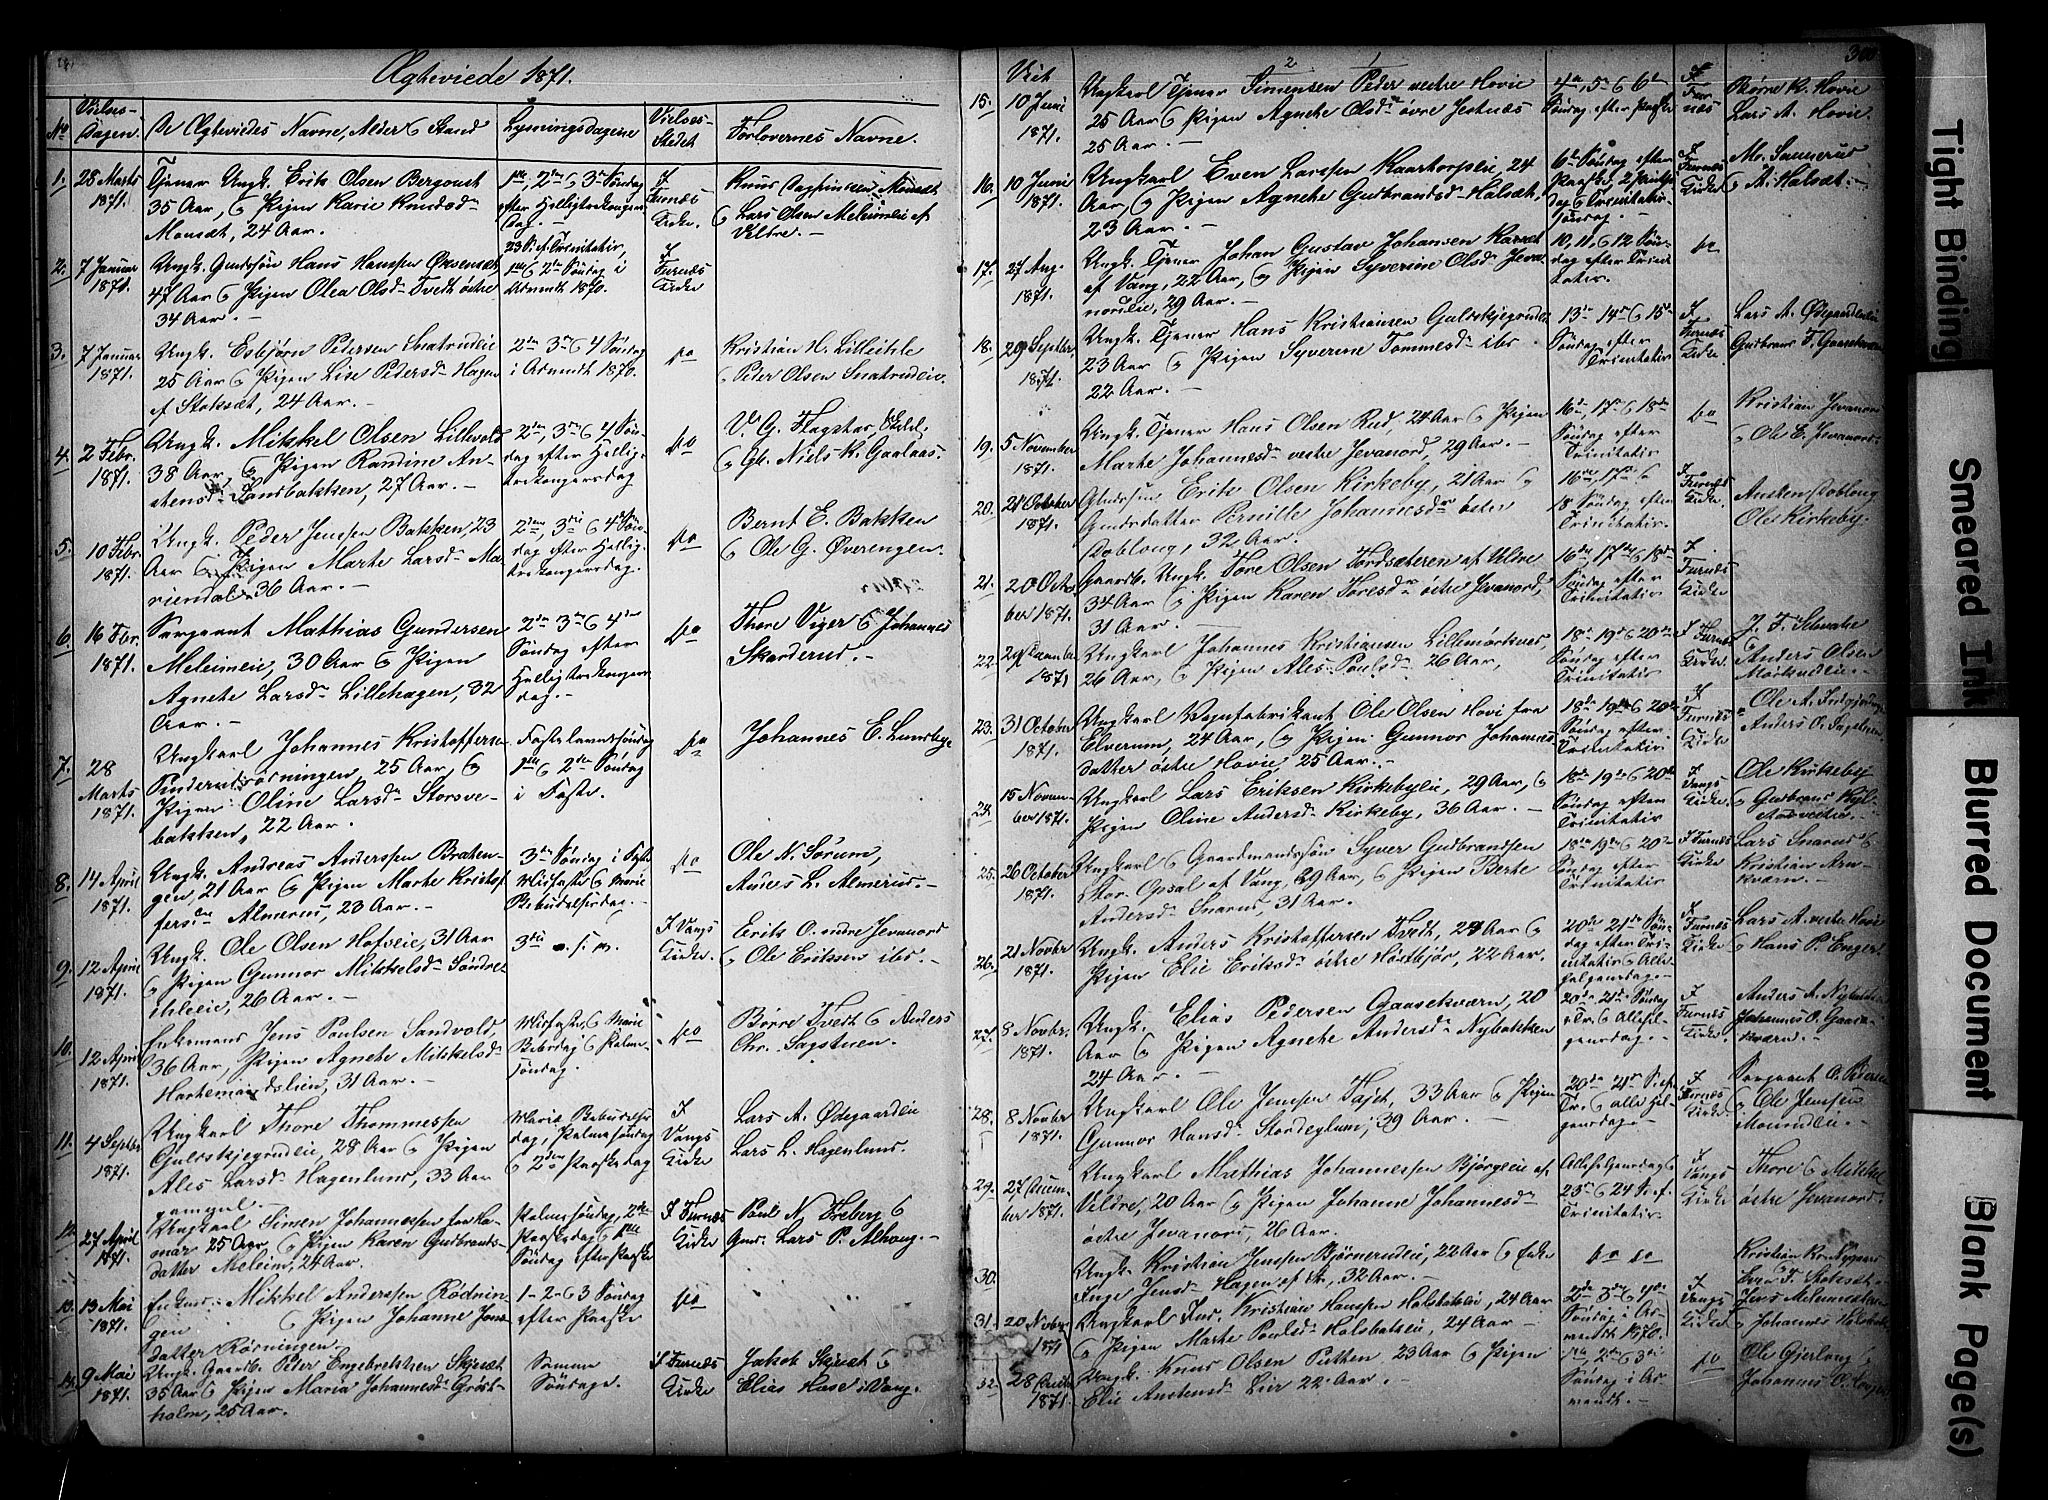 Ægteviede 1871.
No
Vielses-
Dagen.
De Ægteviedes Navne, Alder & Stand
Lysningsdagene
Vielses-
Stedet
Forlovernes Navne.
1. 28 Marts 1871.
Tjener Ungk. Erik Olsen Bergoust
35 Aar, & Pigen Karie Knudsdr
Monsæt, 24 Aar.
1ste, 2den & 3die Søndag
efter Helligtrekonger
Dag.
I
Furnæs
Kirke
Knud Dagfinsen Monsæt
& Lars Olsen Meleimeie af
Veldre.
2. 7 Januar 1871.
Ungk. Gmdssøn Hans Hanssen
47 Aar & Pigen Olea Olsdr Tvedt østre
34 Aar.
23 S. ef. Trinitatis,
1ste & 2den Søndag i
Advendt 1870.
I
Furnæs
Kirke
3. 7 Januar 1871.
Ungk. Esbjørn Pedersen Smatrudeie
25 Aar & Pigen Lise Pedersdr Hagen
af Stoksæt, 24 Aar.
2den 3die & 4 Søndag
i Advendt 1870.
do
Kristian H. Lilleihle
& Peder Olsen Smatrudeie.
4. 2 Febr. 1871.
Ungk. Mikkel Olsen Lillevold
38 Aar, & Pigen Randine An-
stensdr Sandbakken, 27 Aar.
2den, 3die & 4 Søn-
dag efter Hellig-
trekongersdag
do
V. G. Flagstad,
& Gb. Niels K. Gaalaas.
5. 10 Febr. 1871.
Ungk. Peder Jenssen Bakken, 23
Aar & Pigen Marte Larsdr Ma-
riendal 36 Aar.
2den, 3die & 4de Søn-
dag efter Hellig-
trekongersdag.
do
Bernt E. Bakken
& Ole G. Øverengen.
6. 16 Febr. 1871.
Sergeant Mathias Gundersen
Meleimeie, 30 Aar & Pigen
Agnethe Larsdr Lillehagen, 32
Aar.
2den 3die & 4de
Søndag efter
Helligtrekongers
dag.
do
Thore Viger & Johannes
Skarderud.
7. 28 Marts 1871.
Ungkarl Johannes Kristoffersen
25 Aar, &
Pigen Oline Larsdr Storsve-
bakken, 22 Aar.
Fastelavnssøndag
1ste & 2den Søndag
i Faste.
do
Johannes E. Lundby
8. 14 April 1871.
Ungk. Andreas Anderssen Braten-
gen, 21 Aar & Pigen Marte Kristof
fersdr Almerud, 23 Aar.
3die Søndag i Faste
Midfaste & Marie
Bebudelsesdag.
do
Ole N. Sørum,
Anders L. Almerud.
9. 12 April 1871.
Ungk. Ole Olsen Hofseie, 31 Aar
& Pigen Gunnor Mikkelsdr Søndre
ihleeie, 26 Aar.
3die
I Vangs
Kirke.
Erik O. ndre Jevanord
& Ole Erikssen ibd.
10. 12 April 1871.
Enkemand Jens Poulsen Sandvold,
36 Aar, Pigen Agnethe Mikkelsdr
31 Aar.
Midfaste, & Marie
Bebdag & Palme-
søndag.
do
Børre Tvedt & Anders
Chr. Sagstuen.
11. 4 Septbr 1871.
Ungkarl Thore Thommessen
Gulskjegrudeie, 28 Aar & Pigen
Ales Larsdr Hagenlund, 33 Aar
gammel.
Marie Bebudelses
dag, Palmesøndag
& 2den Paaskedag
I
Vangs
Kirke
Lars A. Ødegaardeie
Lars L. Hagenlund.
12. 27 April 1871.
Ungkarl Simen Johannessen fra Ha-
mar 25 Aar & Pigen Karen Gudbrands-
datter Meleim, 24 Aar.
Palmesøndag, 2den
Paaskedag & 1ste
Søndag efter Paaske
I Furnæs
Kirke
Poul N. Dreberg &
Gmd. Lars P. Alhaug.
13. 13 Mai 1871.
Enkmd. Mikkel Anderssen Rødnin-
gen & Pigen Johanne Jens-
datter Rørningen.
1-2-& 3 Søndag
efter Paaske
do
14. 9 Mai 1871.
Ungk. Gaardbr Peder Engebretssen Skjesæt
35 Aar & Pigen Maria Johannesdr Grøst-
holm, 25 Aar.
Samme
Søndage.
I Furnæs
Kirke
Jakob Skjesæt &
Elias Hase i Vang.
300
Viet
15. 10 Juni 1871.
Ungkarl Tjener Simensen Peder vestre Hovie
25 Aar & Pigen Agnethe Olsdr øvre Jestnæs
25 Aar.
4de, 5te & 6te
Søndag efter Paaske
I
Fur-
næs
Børre K. Hovie
Lars A. Hovie.
16. 10 Juni 1871.
Ungkarl Even Larssen Kaartorpeie, 24
Aar, & Pigen Agnethe Gudbrandsdr Halsæt,
23 Aar.
6te Søndag efter
Paaske, 2 Pintse
dag & Trinitatis-
Søndag.
I
Furnæs
Kirke
Mo. Sannerud
& A. Halsæt.
17. 27 Aug. 1871.
Ungk. Tjener Johan Gustav Johansen
af Vang, 22 Aar, & Pigen Syverine Olsdr Jeva-
nordeie, 29 Aar.
10, 11, & 12 Søn-
dag efter Trini-
tatis.
do
18. 29 Septbr 1871.
Ungk. Tjener Hans Kristiansen Gulskjegrudeie
23 Aar & Pigen Syverine Tommesdr ibd
22 Aar.
13de 14de & 15de
Søndag efter
Trinitatis
I
Furnæs
Kirke
Lars A. Ødegaardeie
Gudbrand T.
19. 5 November 1871.
Ungk. Tjener Hans Olsen Rud, 24 Aar & Pigen
Marte Johannesdr vestre Jevanord, 29 Aar.
16de, 17de & 18de
Søndag efter
Trinitatis
do
Kristian Jevanord
& Ole E. Jevanord.
20. 21 October 1871.
Gmdssøn Erik Olsen Kirkeby, 21 Aar &
Gmdsdatter Pernille Johannesdr østre
Doblong, 32 Aar.
16de, 17de &
18 Søndag efter
Trinitatis.
I
Furnæs
Kirke
Ansten Doblong
Ole Kirkeby.
21. 20 October 1871.
Gaardb. Ungk. Tore Olsen Tordsæteren af Veldre
34 Aar & Pigen Karen Toresdr østre Jevanord,
31 Aar.
16de, 17de & 18de
Søndag efter
Trinitatis
I.
Furnæs
Kirke
22. 1871
Ungkarl Johannes Kristiansen Lillemørknes,
26 Aar, & Pigen Ales Poulsdr 26 Aar,
18de 19de & 20de
Søndag efter
Trinitatis
I Furnæs
Kirke
J. F. Schwabe
Anders Olsen
23. 31 October 1871.
Ungkarl Vognfabrikant Ole Olsen Hovi fra
Elverum, 24 Aar, & Pigen Gunnor Johannes
datter østre Hovie, 25 Aar.
18de 19de & 20de
Søndag efter.
Trinitatis
I
Furnæs
Kirke
Ole A.
Anders O.
24. 15 Novem-
ber 1871.
Ungkarl Lars Eriksen Kirkebyeie, 29 Aar, &
Pigen Oline Andersdr Kirkeby, 36 Aar.
18de 19de & 20de
Søndag efter
Trinitatis
I
Vangs
Kirke
Ole Kirkeby
& Gudbrand
25. 26 October 1871
Ungkarl & Gaardmandssøn Syver Gudbrandsen
Stor Opsal af Vang, 29 Aar, & Pigen Berthe
Andersdr Snarud, 31 Aar.
18de 19de & 20de
Søndag efter
Trinitatis
I Furnæs
Kirke
Lars Snarud &
Kristian Arn-
kværn.
26. 21 Novbr 1871.
Ungk. Anders Kristoffersen Tvedt, 24 Aar &
Pigen Elie Eriksdr østre Høstbjør, 22 Aar.
20de 21de Søn-
dag efter Tri-
nitatis & Alle-
helgensdag.
I
Furnæs
Kirke
Lars A. vestre Hovie
& Hans P. Enger
27. 8 Novbr. 1871.
Ungk. Elias Pedersen Gaasekværn, 20
Aar & Pigen Agnethe Andersdr Nybakken
24 Aar.
20de 21de Søndag
e Tr. & Allehel-
gensdag.
I
Furnæs
Kirke.
Anders A. Nybakken
Johannes O. Gaase-
kværn.
28. 8 Novbr 1871.
Ungkarl Ole Jenssen Tajet, 33 Aar & Pigen
Gunnor Hansdr Stordeglum, 39 Aar.
20de 21de S. ef.
Tr. & alle Hel-
gensdag.
I
Furnæs
Kirke
Sergeant O. Pedersen
& Ole Jenssen
29. 27 Decem-
ber 1871.
Ungkarl Mathias Johannessen Bjørgeie af
Veldre, 20 Aar & Pigen Johanne Johannesdr
østre Jevanord, 26 Aar.
Allehelgensdag &
23de & 24 S. ef.
Trinitatis.
I
Vangs
Kirke
Thore & Mikkel
østre Jevanord.
30.
Ungk. Kristian Jenssen Bjørnerudeie, 22 Aar & Enke
Inge Jensdr Hagen af St., 32 Aar.
do do
Kristian
Even T. Stoksæt.
31. 20 Novbr 1871
Ungkarl Ind. Kristian Hanssen Holsbakeie, 24 Aar
& Pigen Marte Poulsdr Holsbakeie, 24 Aar.
2den 3die & 4de
Søndag i Ad-
vendt 1870.
I
Vangs
Kirke
Jens
& Johannes Holsbak
32. 28 1871.
Ungk. Knud Olsen Putten 23 Aar & Pigen
Elie Anstensdr Lier 22 Aar.
1ste, 2den & 3die
Søndag i Ad-
vendt.
do
Ole Gjerlong &
Johannes O.
Tight Binding
Smeared Ink
Blurred Document
Blank Page(s)